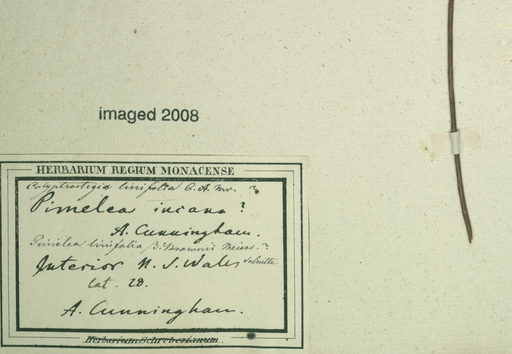 imaged 2008
HERBARIUM REGIUM MONACENSE
Calyptrostegia linifolia C. A. Mr. ?
Pimelea incana?
A. Cunningham.
Pimelea linifolia β. Brownii Meissn. ?
Interior N. S. Wales
Cat. 28.
A. Cunningham.
Herbarium Schreberianum.